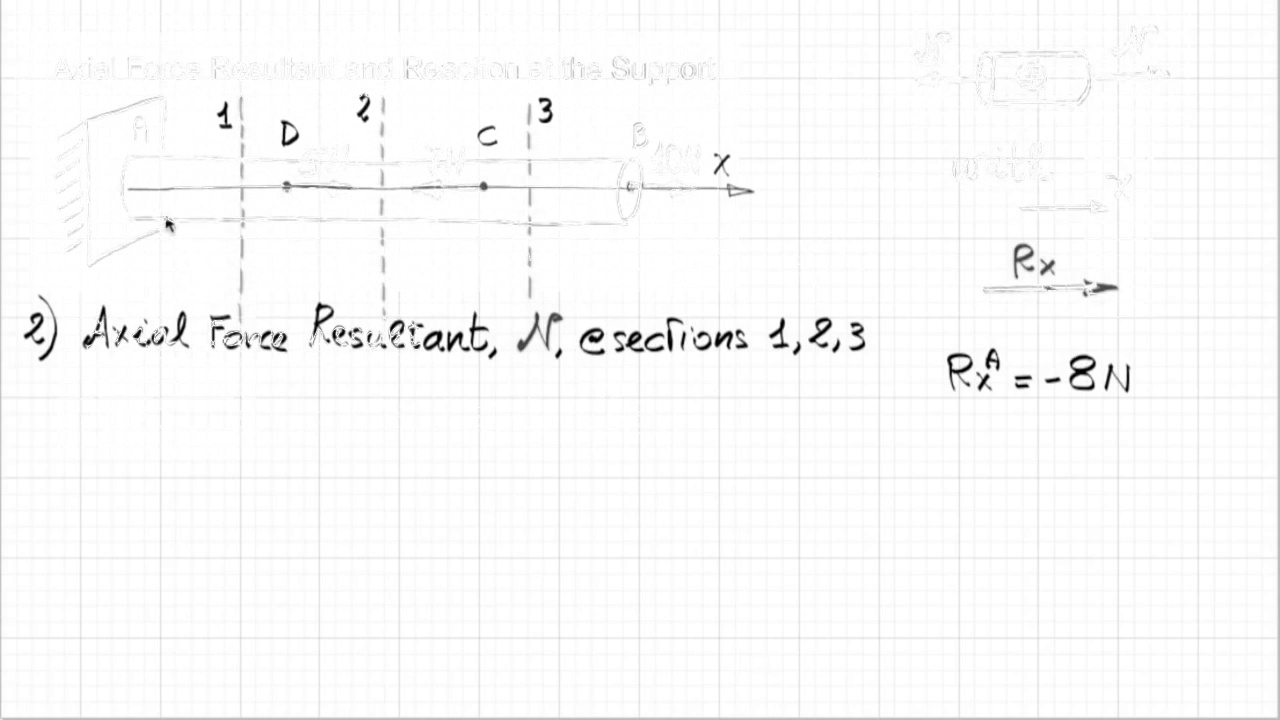 Axial Force Resultant and Reaction at the Support
N N
1 2 3
A D C B
5N 7N 10N X
with
X
Rx
2) Axial Force Resultant, N, @ sections 1, 2, 3
Rx^A = -8N